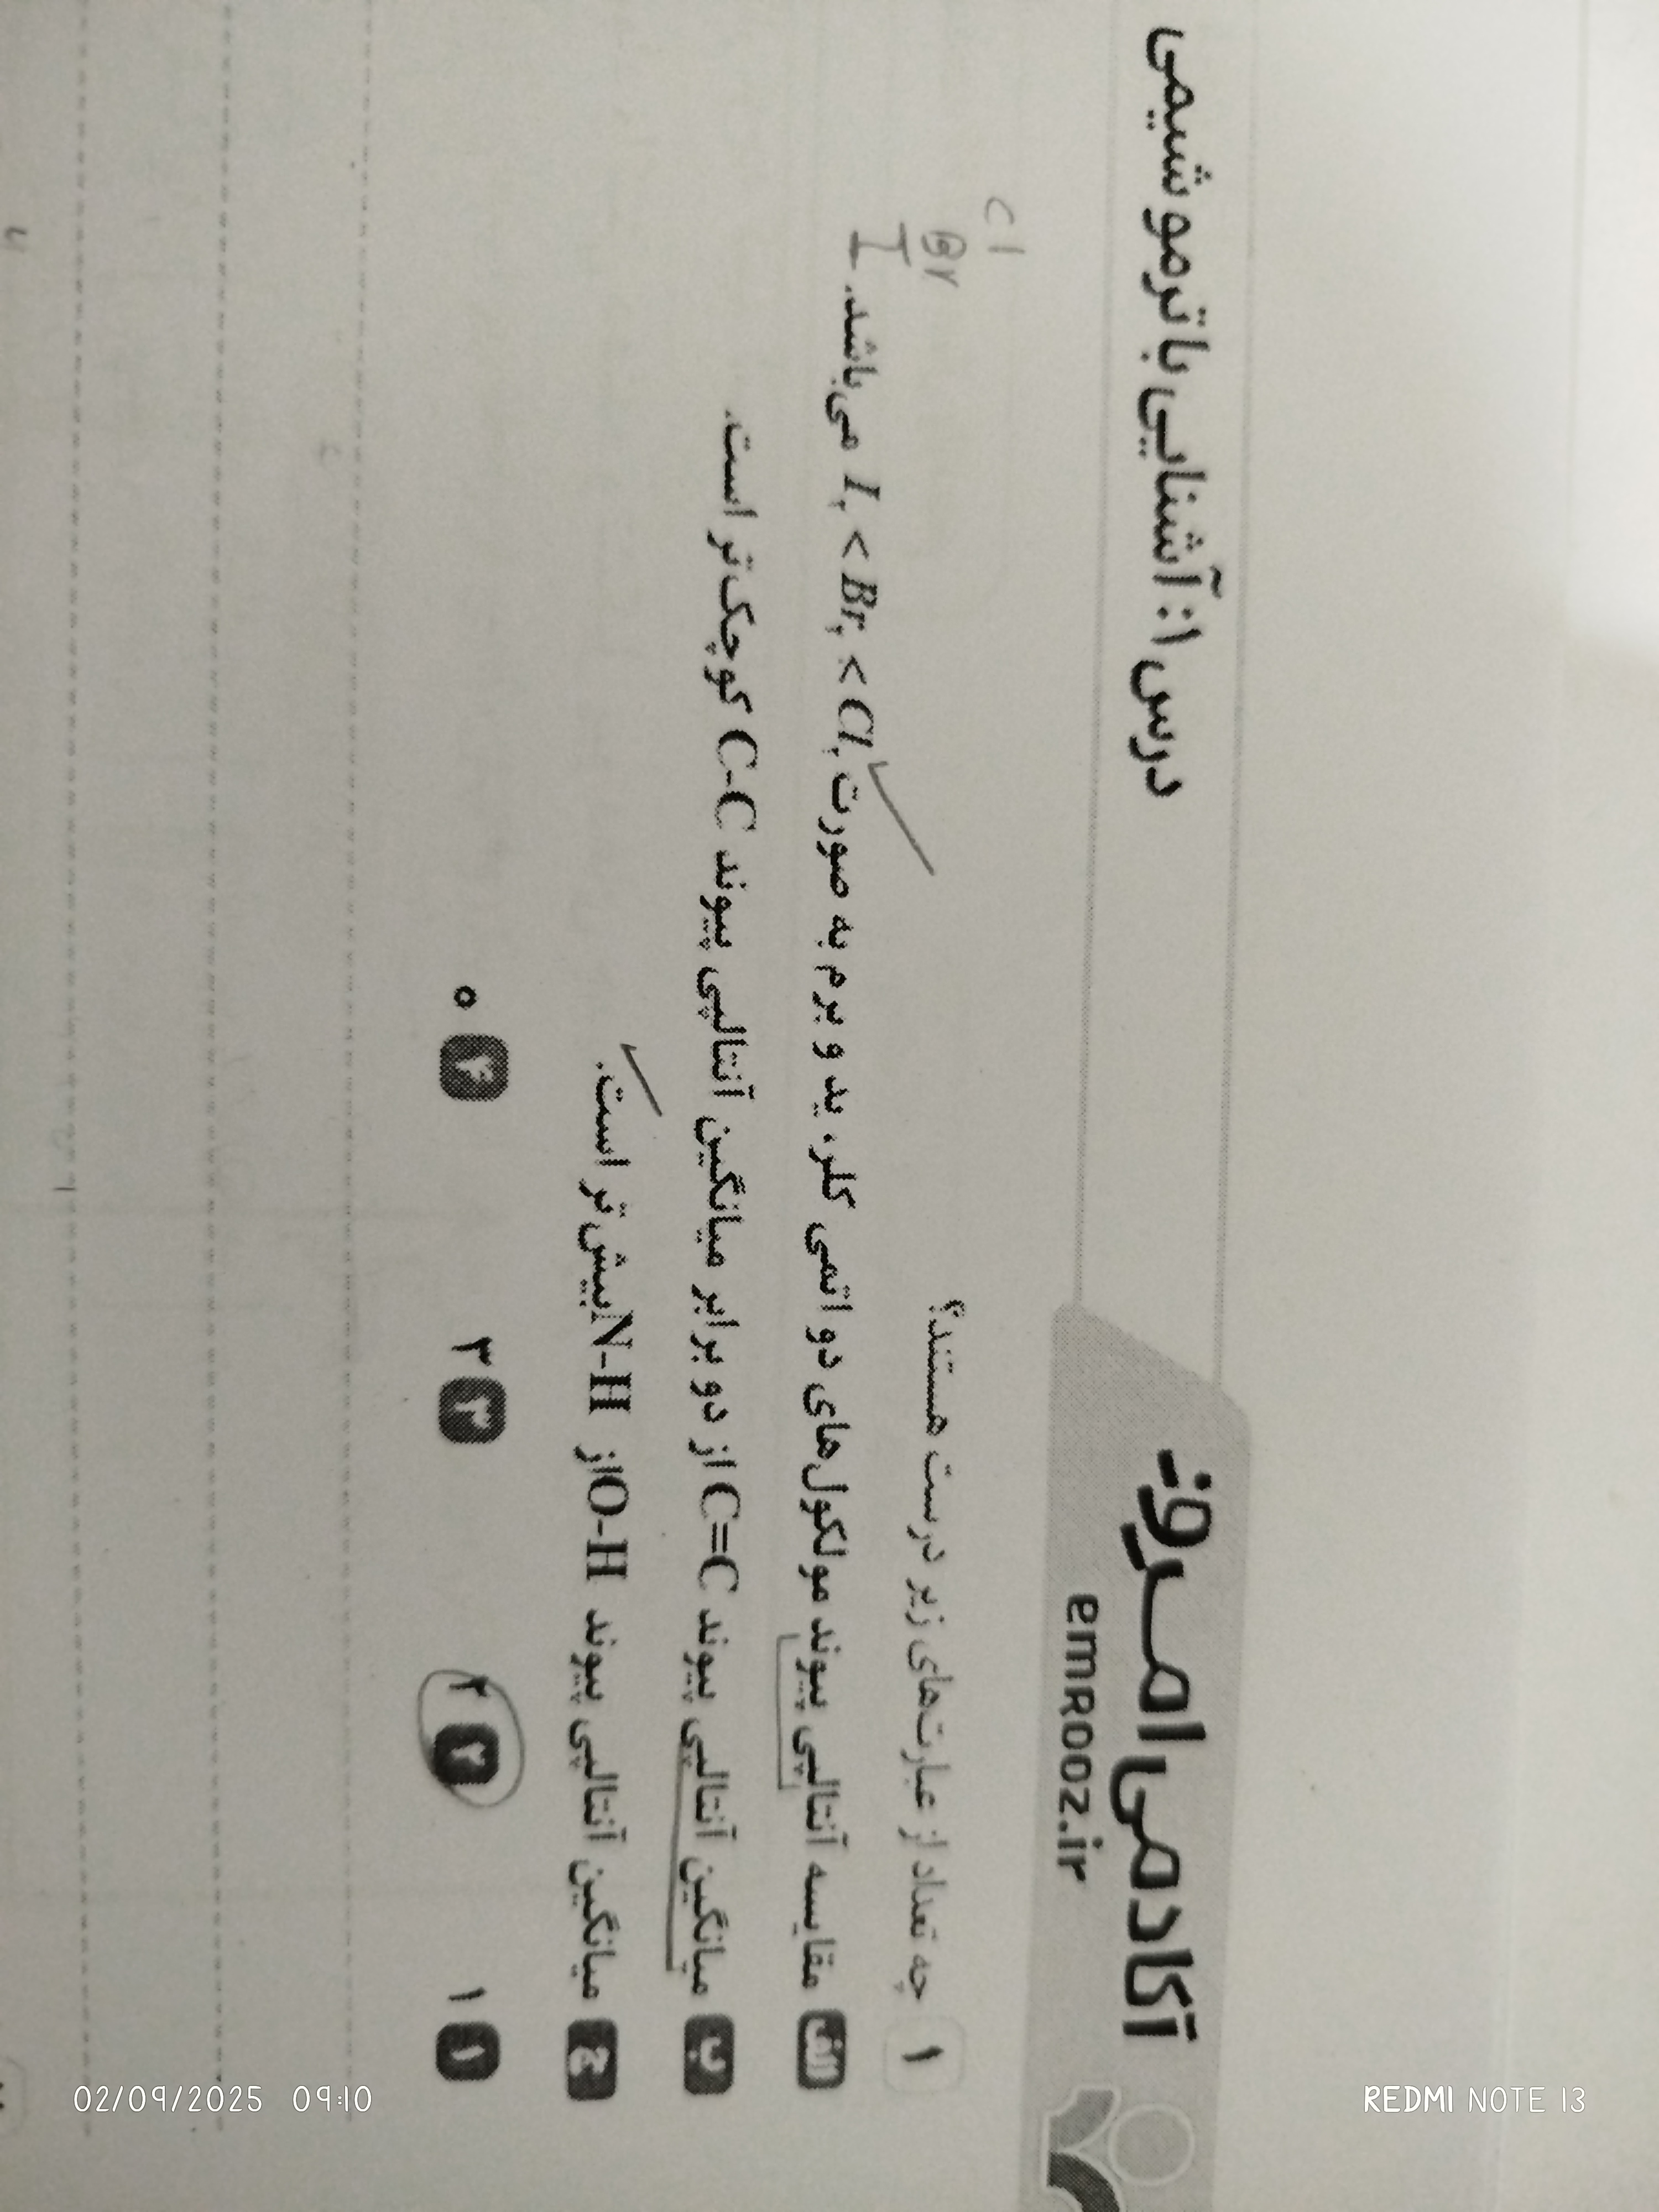 درس ۱: آشنایی با ترموشیمی
آکادمی امروز
emRooz.ir
۱ چه تعداد از عبارت‌های زیر درست هستند؟
الف مقایسه آنتالپی پیوند مولکول‌های دو اتمی کلر، ید و برم به صورت I₂ < Br₂ < Cl₂ می‌باشد.
Cl
Br
I
ب میانگین آنتالپی پیوند C=C از دو برابر میانگین آنتالپی پیوند C-C کوچک‌تر است.
ج میانگین آنتالپی پیوند O-H از N-H بیش‌تر است.
۱ ۱ ۲ ۲ ۳ ۳ ۴ ۰
REDMI NOTE 13
02/09/2025 09:10